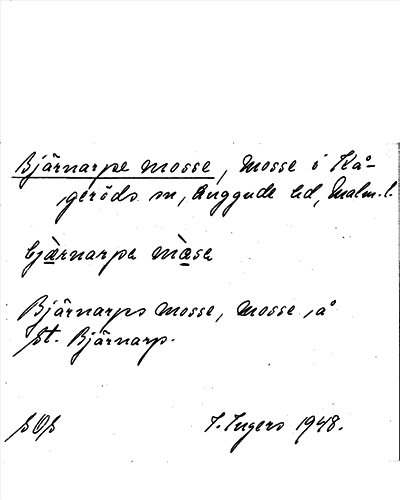 Bjärnarpe mosse, Mosse i Kå-
geröds sn, Luggude hd, Malm. l.
bjæ̀rnarpa mɑ̀sa
Bjärnarps mosse, mosse å
st. Bjärnarp.
sOs
I. Ingers 1948.